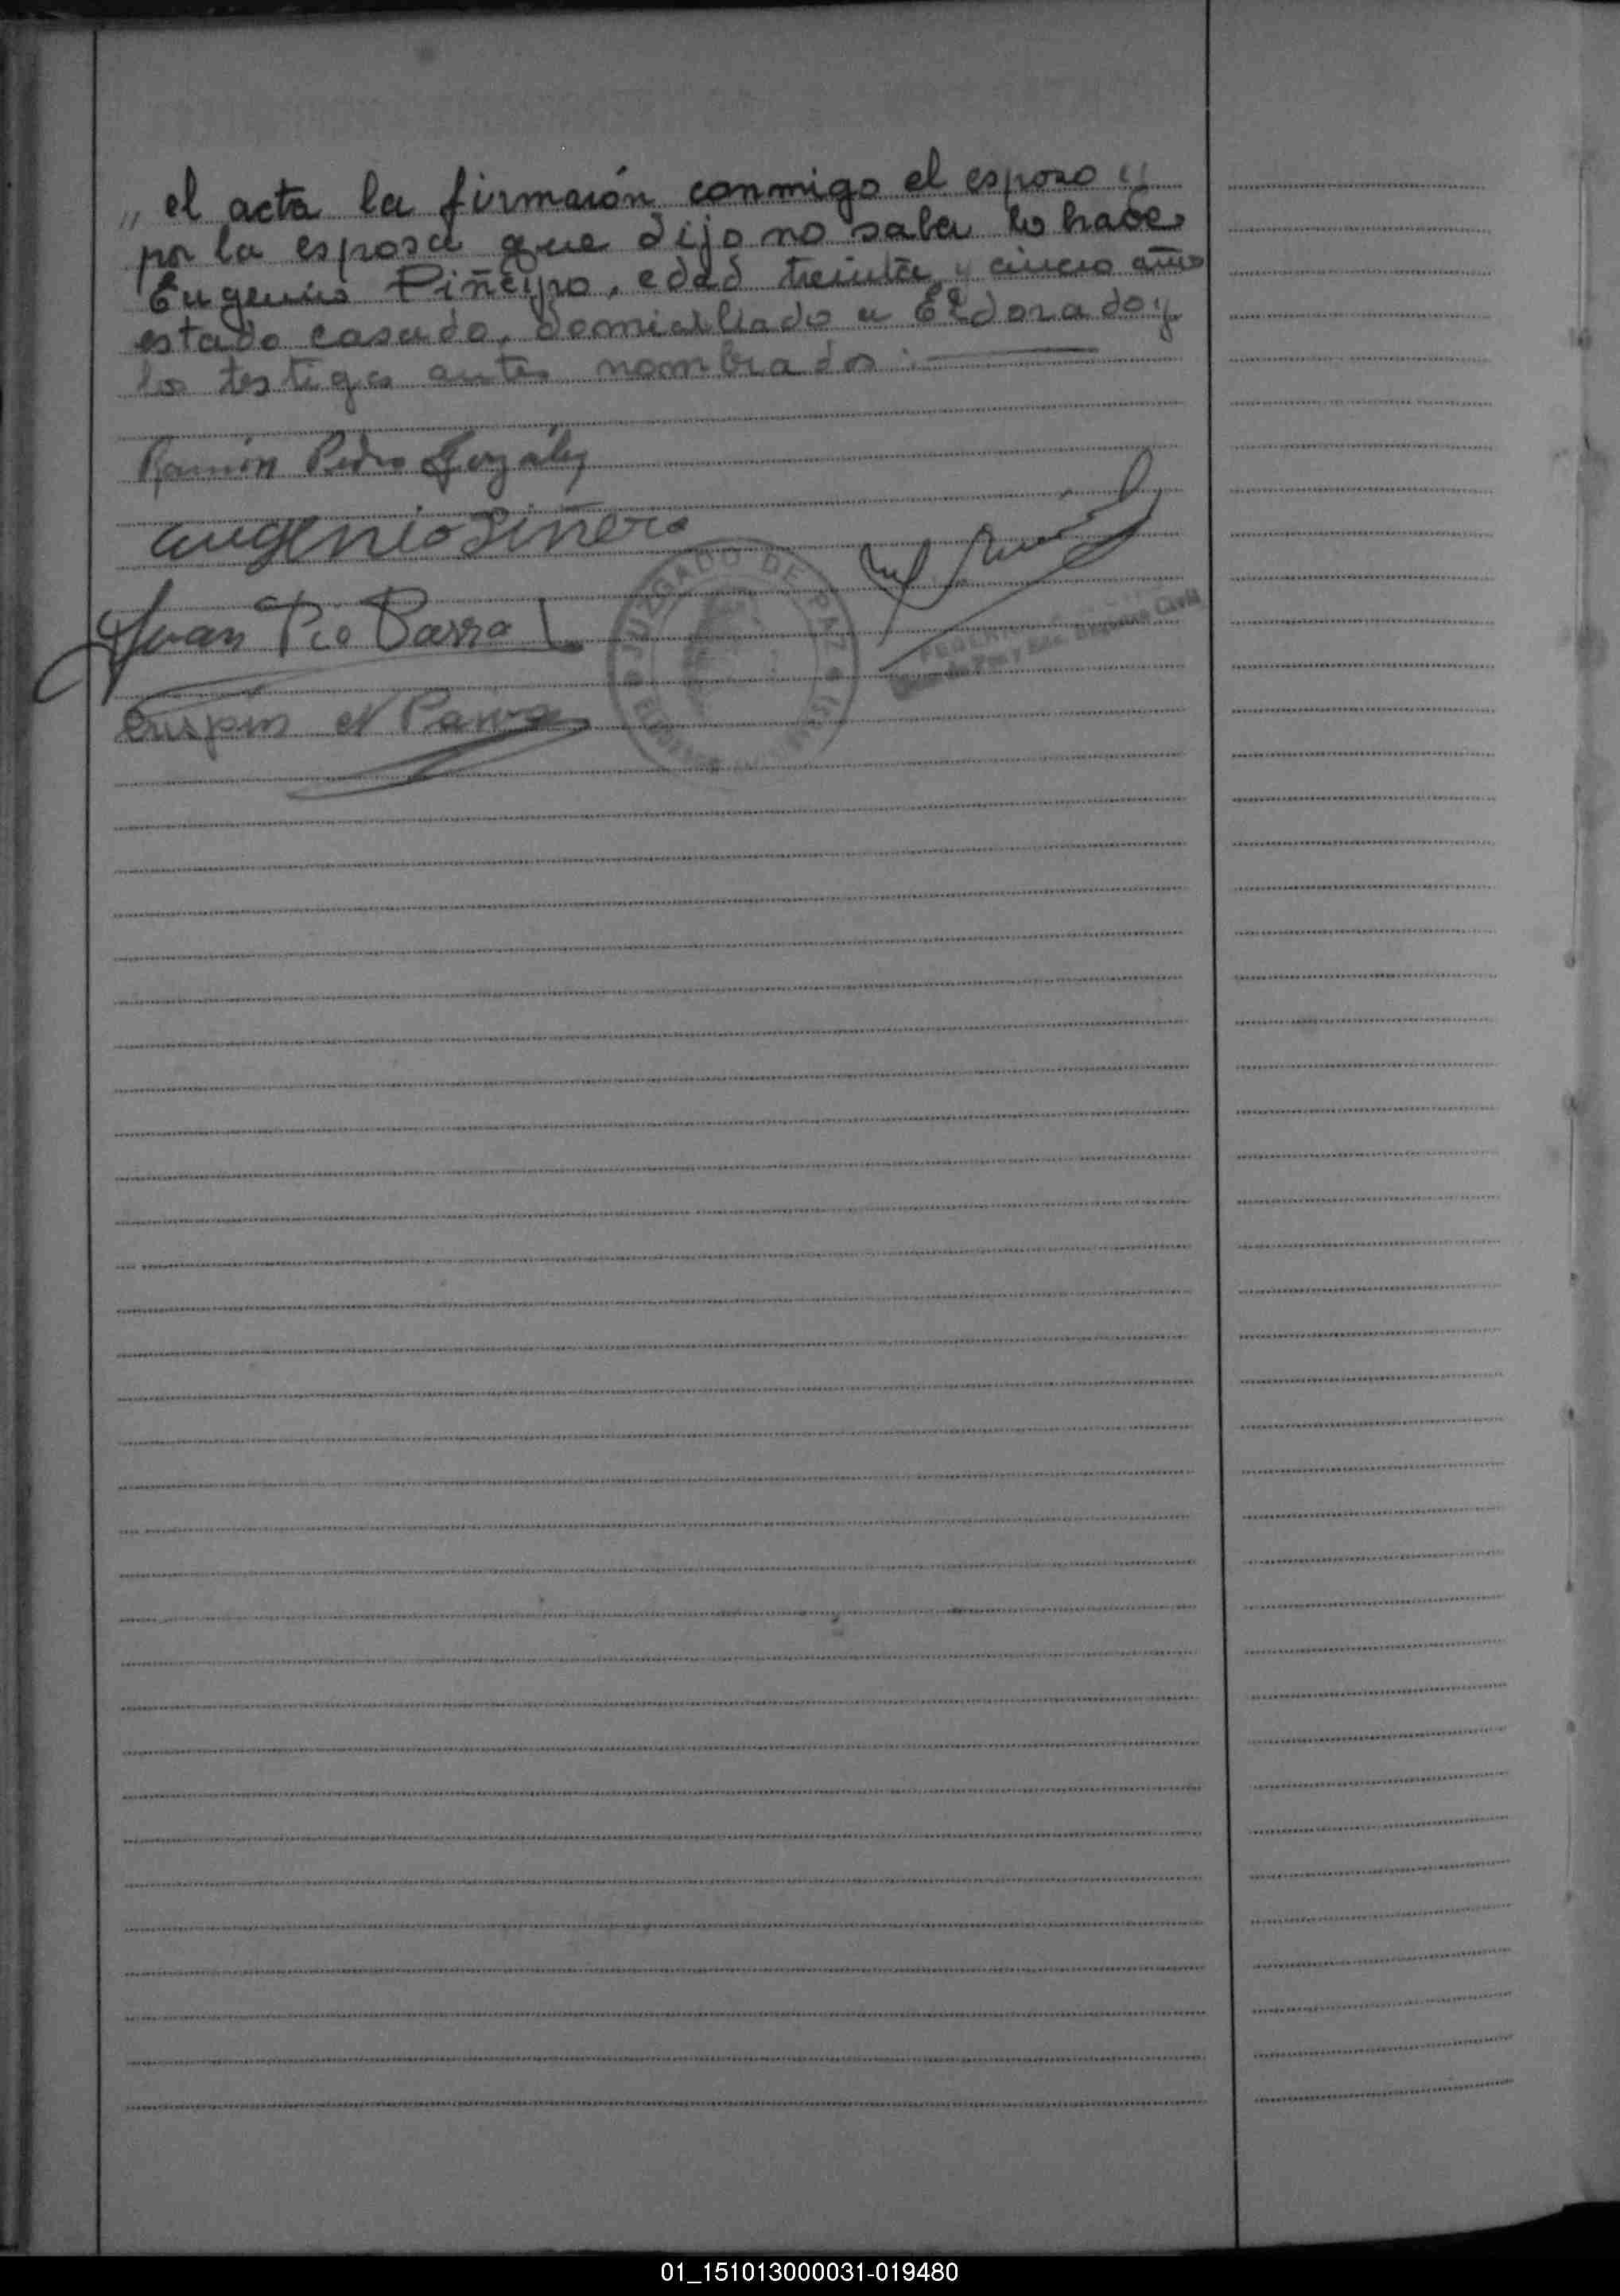 „ el acta la firmarón conmigo el esposo y
por la esposa que dijo no saber lo hace
Eugenio Piñeyro, edad treinta y cinco años
estado casado, domiciliado a Eldorado y
los testigos antes nombrados.
Ramón Pedro González
eugenio Piñero
Juan Pio Parra
Crispin
JUZGADO DE PAZ
Civil
01_151013000031-019480